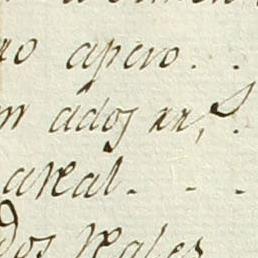 ro apero. .
n ádos rr,ˢ.
areal. - -
dos reales